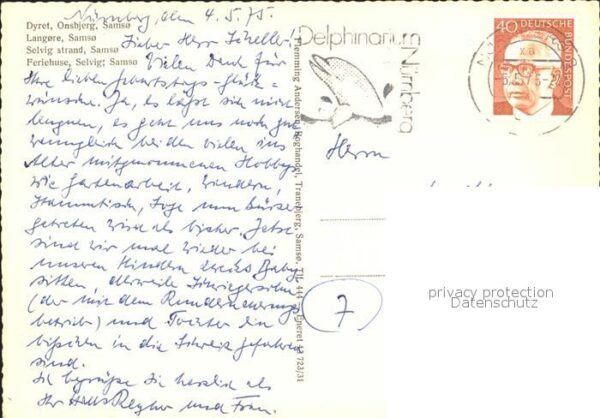 Nürnberg, den 4.5.75.
Dyret, Onsbjerg, Samsø
Langøre, Samsø
Selvig strand, Samsø
Feriehuse, Selvig; Samsø
Lieber Herr Scheller!
Vielen Dank für
Ihre lieben Geburtstags-Glück-
wünsche. Ja, es läßt sich nicht
leugnen, es geht uns noch gut
wenngleich bei den vielen ins
Alter mitgenommenen Hobbys
wie Gartenarbeit, Wandern,
Stammtisch, Tage nun kürzer
getreten wird als bisher. Jetzt
sind wir mal wieder bei
unseren Kindern Baby
sitten, derweile Schwiegersohn
(der mit dem Runderneuerungs
betrieb) und Tochter ein
bißchen in die Schweiz gefahren
sind.
Ich begrüße Sie herzlich als
Ihr und Frau.
Flemming Andersen, Boghandel, Tranebjerg, Samsø, Tlf. 444 Eneret 42 723/31
Delphinarium
Nürnberg
40 DEUTSCHE
BUNDESPOST
Herrn
7
privacy protection
Datenschutz